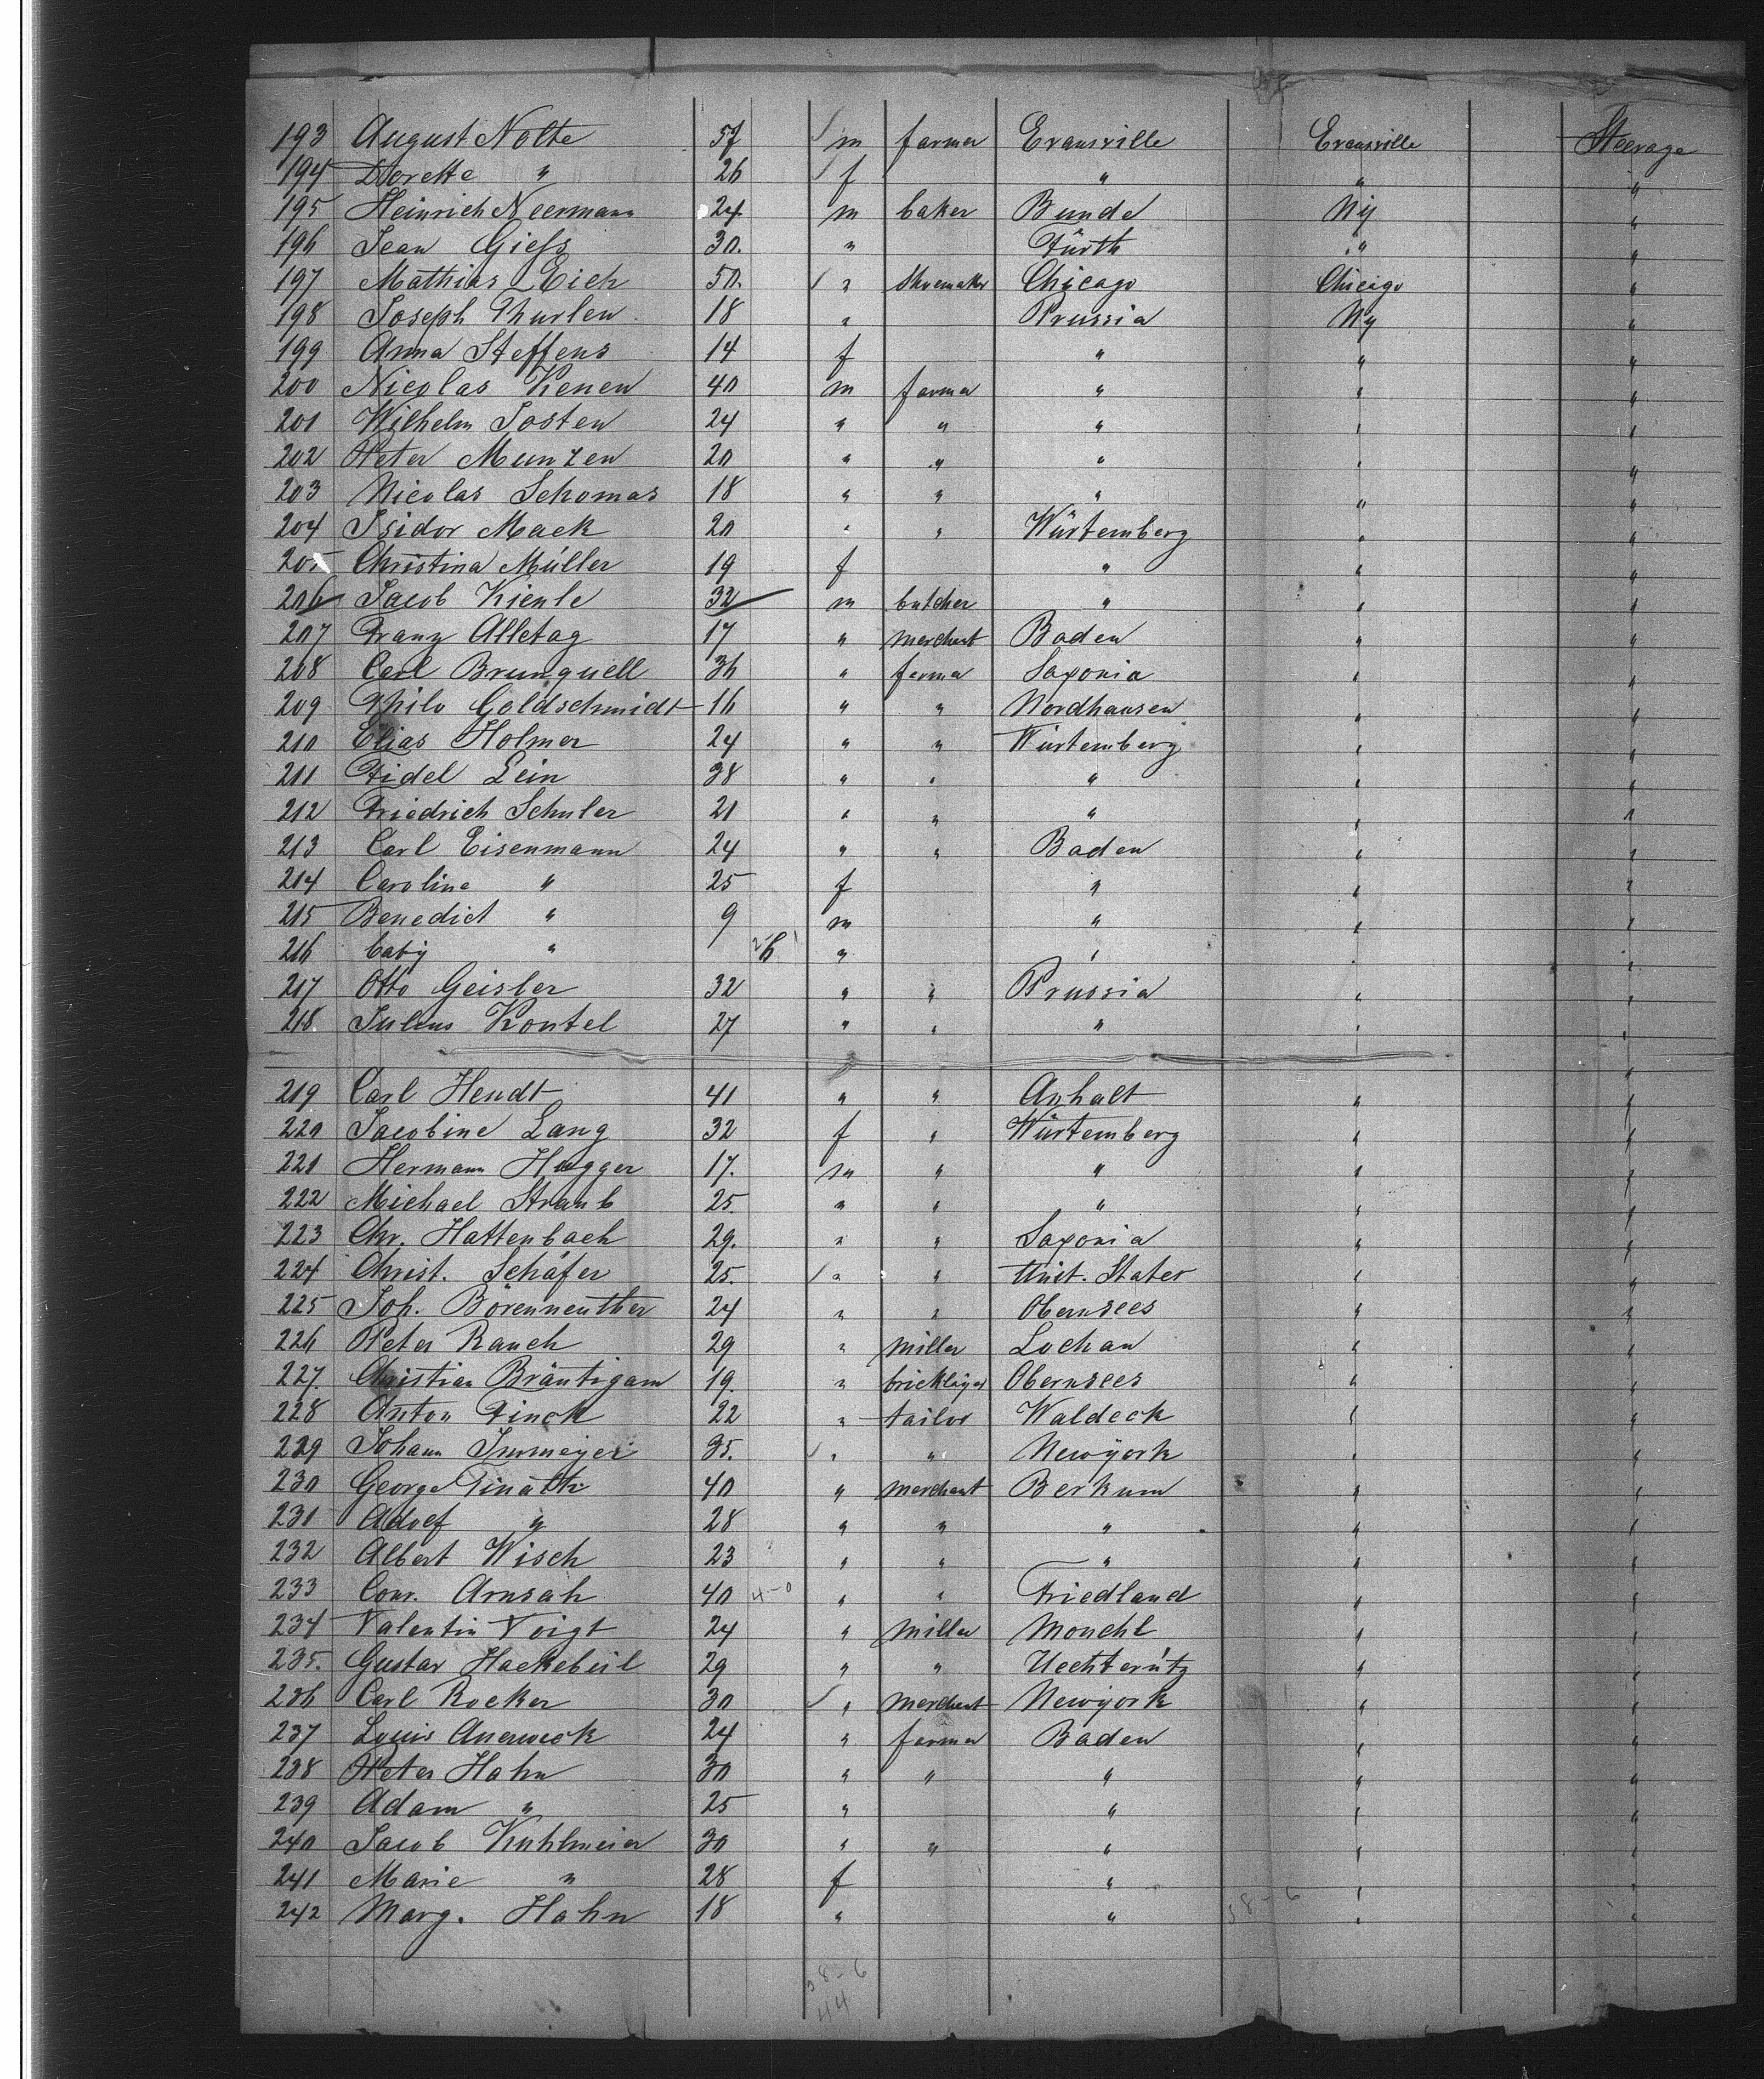 193 August Nolte 57 ✓ m farmer Evansville Evansville Steerage
194 Dorette " 26 ✓ f " " "
195 Heinrich Neermann 24 m baker Bunde Ny "
196 Jean Giess 30. " Fürth " "
197 Mathias Eich 50. ✓ " Shoemaker Chicago Chicago "
198 Joseph Thurlen 18 " Prussia Ny "
199 Anna Steffens 14 f " " "
200 Nicolas Kenen 40 m farmer " " "
201 Wilhelm Josten 24 " " " " "
202 Peter Munzen 20 " " " " "
203 Nicolas Schomas 18 " " " " "
204 Isidor Mack 20 " " Würtemberg " "
205 Christina Müller 19 f " " "
206 Jacob Kienle 32 m butcher " " "
207 Franz Alletag 17 " merchant Baden " "
208 Carl Brunquell 36 " farmer Saxonia " "
209 Thilo Goldschmidt 16 " " Nordhausen " "
210 Elias Holmer 24 " " Würtemberg " "
211 Fidel Lein 38 " " " " "
212 Friedrich Schuler 21 " " " " "
213 Carl Eisenmann 24 " " Baden " "
214 Caroline " 25 f " " "
215 Benedict " 9 m " " "
216 baby " " " " "
217 Otto Geisler 32 " " Prussia " "
218. Julius Kontel 27 " " " " "
219 Carl Hendt 41 " " Anhalt " "
220 Jacobine Lang 32 f " Würtemberg " "
221 Hermann Hugger 17. m " " " "
222 Michael Straub 25. " " " " "
223 Chr. Hattenbach 29. " " Saxonia " "
224 Christ. Schäfer 25. ✓ " " Unit. States " "
225 Joh. Börenneuther 24 " " Obernsees " "
226 Peter Rauch 29 " miller Lochau " "
227. Christian Bräutigam 19. " bricklayer Obernsees " "
228 Anton Finck 22 " tailor Waldeck " "
229 Johann Immeyer 35. ✓ " " Newyork " "
230 George 40 " merchant Berkum " "
231 Adolf " 28 " " " " "
232 Albert Wisch 23 " " " " "
233 Conr. Arnsah 40 4-0 " " Friedland " "
234 Valentin Voigt 24 " miller " "
235. Gustav Hackebeil 29 " " Uechteritz " "
236 Carl Rocker 30 ✓ " merchant Newyork " "
237 Louis Auerweck 24 " farmer Baden " "
238 Peter Hahn 30 " " " " "
239 Adam " 25 " " " "
240 Jacob Kuhlmeier 30 " " " " "
241 Marie " 28 f " " "
242 Marg. Hahn 18 " " " "
38-6
38-6
44